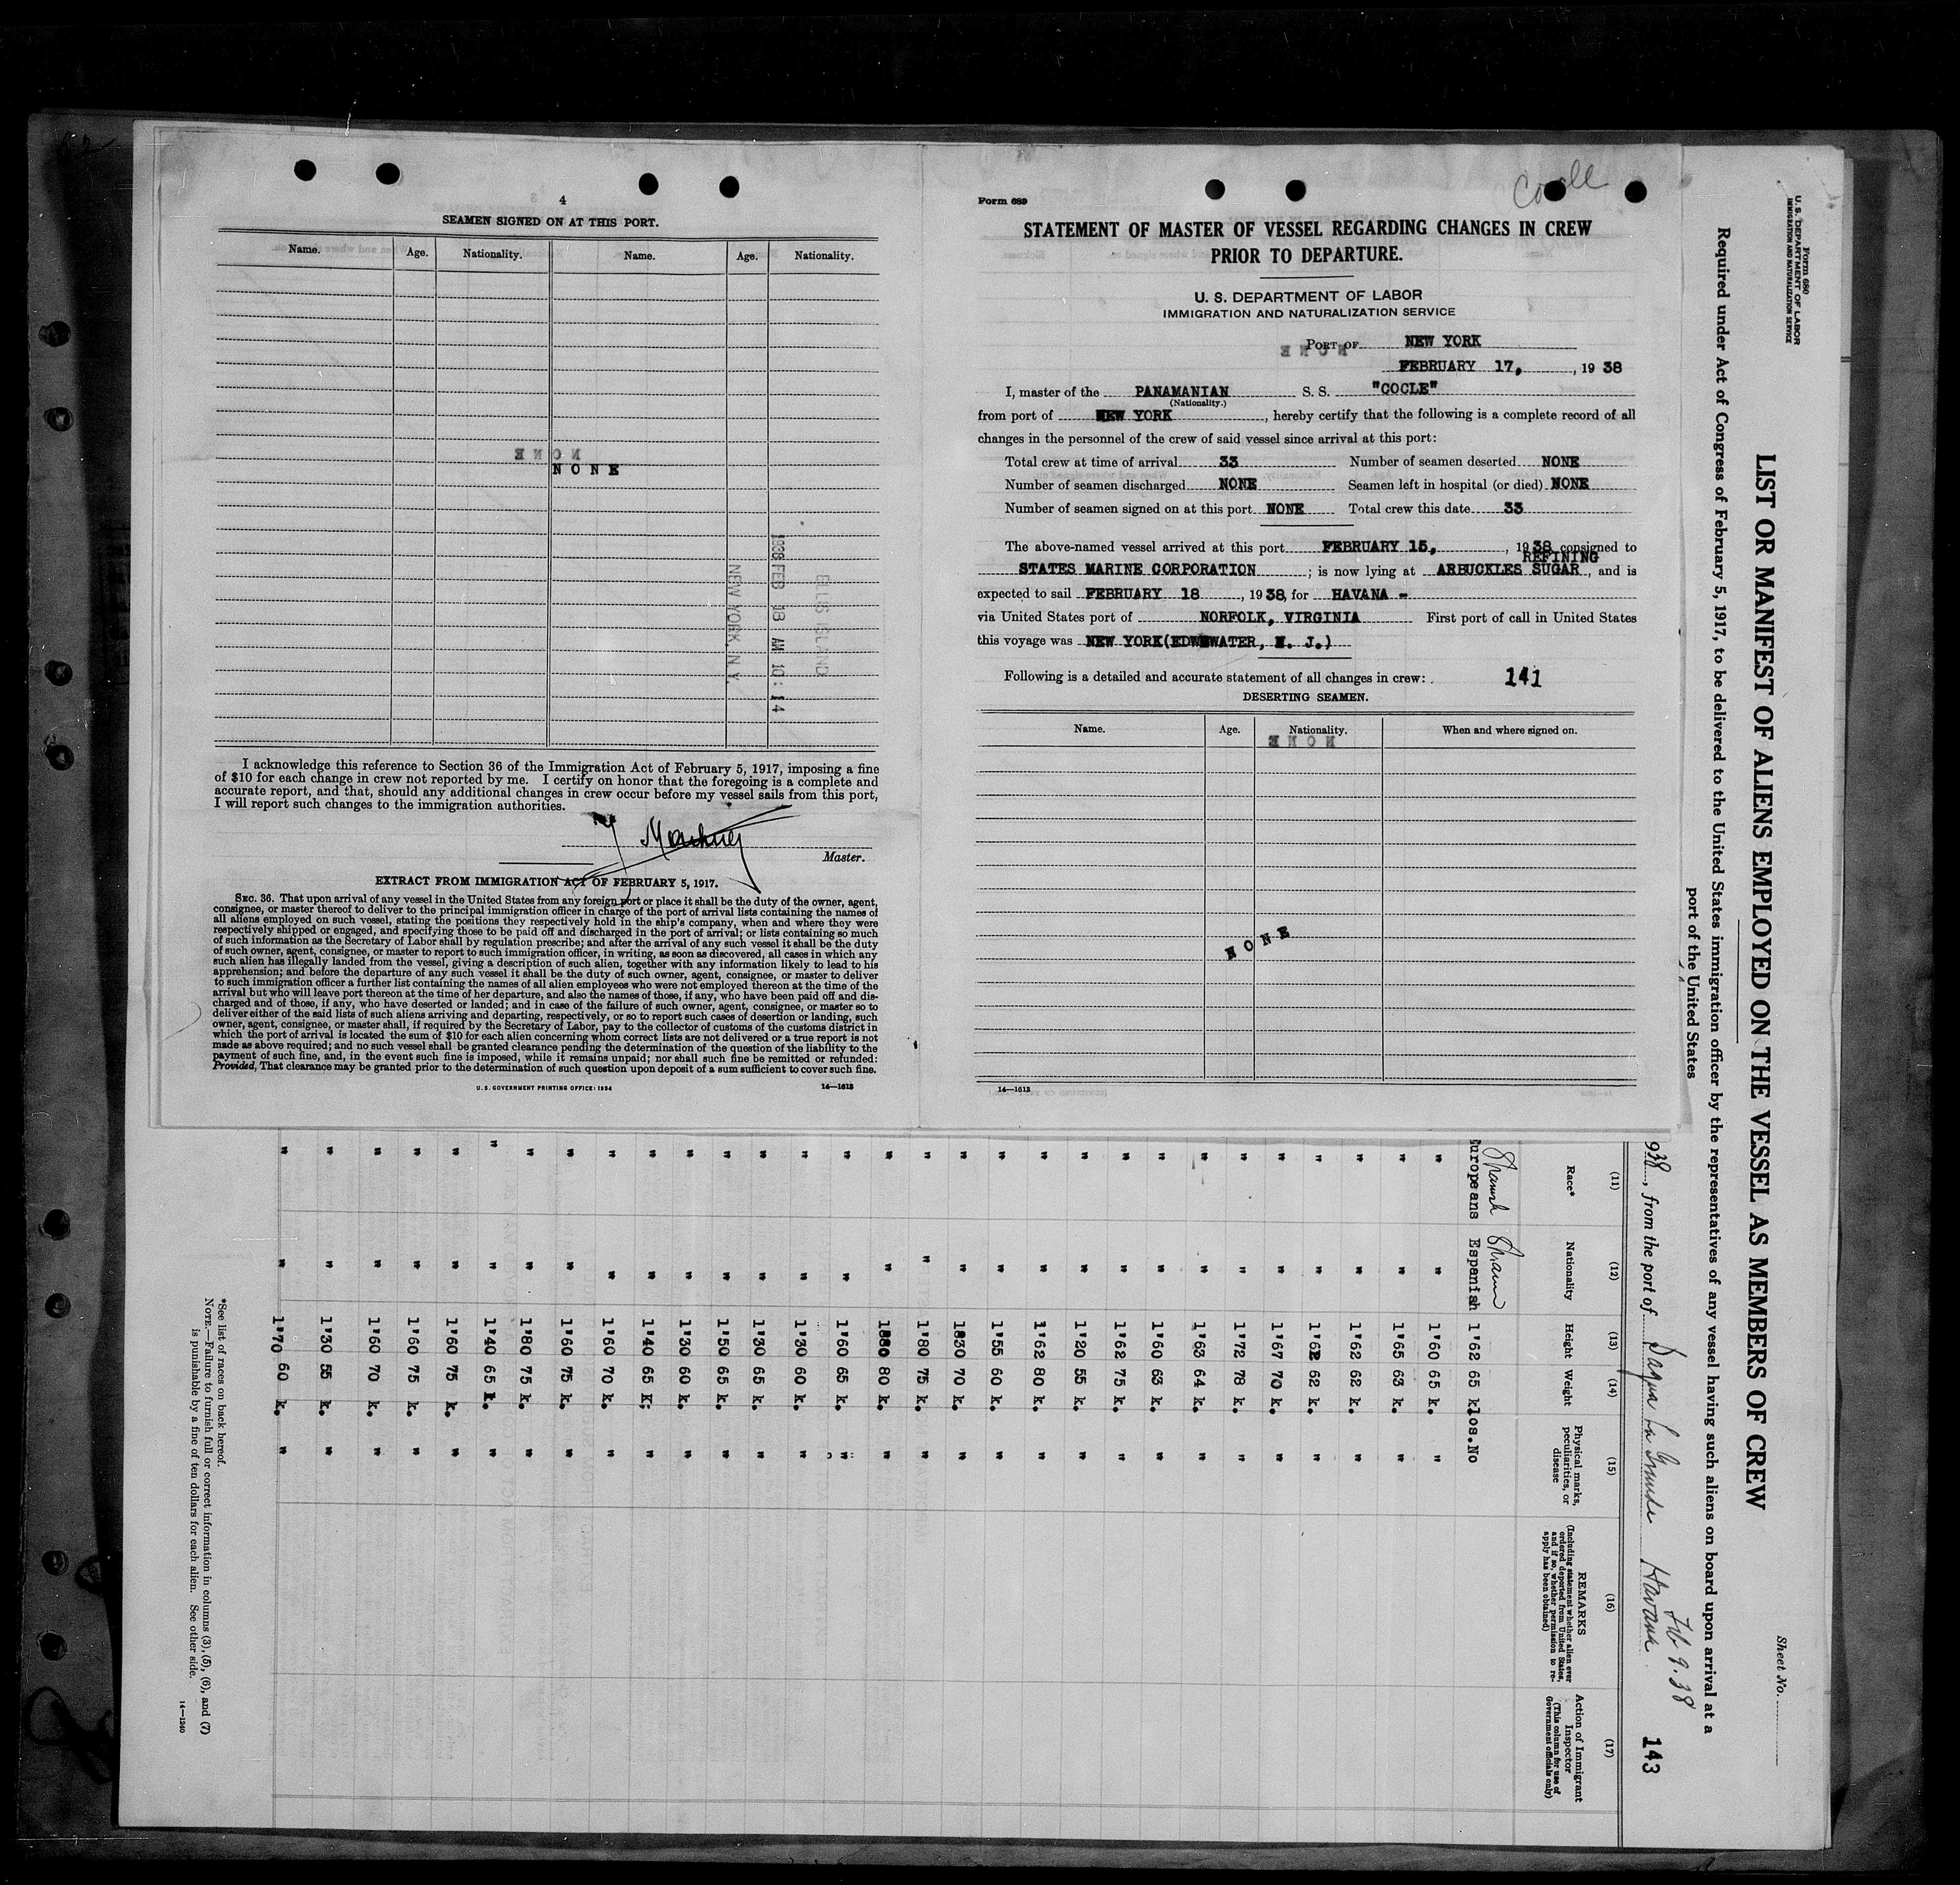 4
SEAMEN SIGNED ON AT THIS PORT.
Name. Age. Nationality. Name. Age. Nationality.
NONE
NONE
ELLIS ISLAND
1938 FEB 18 AM 10:14
NEW YORK, N.Y.
I acknowledge this reference to Section 36 of the Immigration Act of February 5, 1917, imposing a fine
of $10 for each change in crew not reported by me. I certify on honor that the foregoing is a complete and
accurate report, and that, should any additional changes in crew occur before my vessel sails from this port,
I will report such changes to the immigration authorities.
Master.
EXTRACT FROM IMMIGRATION ACT OF FEBRUARY 5, 1917.
SEC. 36. That upon arrival of any vessel in the United States from any foreign port or place it shall be the duty of the owner, agent,
consignee, or master thereof to deliver to the principal immigration officer in charge of the port of arrival lists containing the names of
all aliens employed on such vessel, stating the positions they respectively hold in the ship's company, when and where they were
respectively shipped or engaged, and specifying those to be paid off and discharged in the port of arrival; or lists containing so much
of such information as the Secretary of Labor shall by regulation prescribe; and after the arrival of any such vessel it shall be the duty
of such owner, agent, consignee, or master to report to such immigration officer, in writing, as soon as discovered, all cases in which any
such alien has illegally landed from the vessel, giving a description of such alien, together with any information likely to lead to his
apprehension; and before the departure of any such vessel it shall be the duty of such owner, agent, consignee, or master to deliver
to such immigration officer a further list containing the names of all alien employees who were not employed thereon at the time of the
arrival but who will leave port thereon at the time of her departure, and also the names of those, if any, who have been paid off and dis-
charged and of those, if any, who have deserted or landed; and in case of the failure of such owner, agent, consignee, or master so to
deliver either of the said lists of such aliens arriving and departing, respectively, or so to report such cases of desertion or landing, such
owner, agent, consignee, or master shall, if required by the Secretary of Labor, pay to the collector of customs of the customs district in
which the port of arrival is located the sum of $10 for each alien concerning whom correct lists are not delivered or a true report is not
made as above required; and no such vessel shall be granted clearance pending the determination of the question of the liability to the
payment of such fine, and, in the event such fine is imposed, while it remains unpaid; nor shall such fine be remitted or refunded:
Provided, That clearance may be granted prior to the determination of such question upon deposit of a sum sufficient to cover such fine.
U.S. GOVERNMENT PRINTING OFFICE: 1934 14—1613
Cocle
Form 689
STATEMENT OF MASTER OF VESSEL REGARDING CHANGES IN CREW
PRIOR TO DEPARTURE.
U. S. DEPARTMENT OF LABOR
IMMIGRATION AND NATURALIZATION SERVICE
PORT OF NEW YORK
NONE
FEBRUARY 17, , 19 38
I, master of the PANAMANIAN S. S. "COCLE"
(Nationality.)
from port of NEW YORK , hereby certify that the following is a complete record of all
changes in the personnel of the crew of said vessel since arrival at this port:
Total crew at time of arrival 33 Number of seamen deserted NONE
Number of seamen discharged NONE Seamen left in hospital (or died) NONE
Number of seamen signed on at this port NONE Total crew this date 33
The above-named vessel arrived at this port FEBRUARY 15, , 1938 consigned to
REFINING
STATES MARINE CORPORATION ; is now lying at ARBUCKLES SUGAR , and is
expected to sail FEBRUARY 18 , 1938, for HAVANA -
via United States port of NORFOLK, VIRGINIA First port of call in United States
this voyage was NEW YORK(EDWEWATER, N. J.)
Following is a detailed and accurate statement of all changes in crew: 141
DESERTING SEAMEN.
Name. Age. Nationality. When and where signed on.
NONE
NONE
14—1613
Form 680
U. S. DEPARTMENT OF LABOR
IMMIGRATION AND NATURALIZATION SERVICE
Sheet No.
LIST OR MANIFEST OF ALIENS EMPLOYED ON THE VESSEL AS MEMBERS OF CREW
Required under Act of Congress of February 5, 1917, to be delivered to the United States immigration officer by the representatives of any vessel having such aliens on board upon arrival at a
port of the United States
Feb 9. 38
938, from the port of Sagua La Grande Havana 143
(11) (12) (13) (14) (15) (16) (17)
Race* Nationality Height Weight Physical marks, peculiarities, or disease
REMARKS
(Including statement whether alien ever ordered deported from United States, and if so, whether permission to re-apply has been obtained)
Action of Immigrant Inspector
(This column for use of Government officials only)
Spanish Spain
Europeans Espanish 1'62 65 klos. No
" " 1'60 65 k. "
" " 1'65 63 k. "
" " 1'62 62 k. "
" " 1'62 62 k. "
" " 1'67 70 k. "
" " 1'72 78 k. "
" " 1'63 64 k. "
" " 1'60 63 k. "
" " 1'62 75 k. "
" " 1'20 55 k. "
" " 1'62 80 k. "
" " 1'55 60 k. "
" " 1830 70 k. "
" " 1'80 75 k. "
" " 1880 80 k. "
" " 1'60 65 k. "
" " 1'30 60 k. "
" " 1'30 65 k. "
" " 1'50 65 k. "
" " 1'30 60 k. "
" " 1'40 65 K; "
" " 1'60 70 k. "
" " 1'60 75 k. "
" " 1'80 75 k. "
" " 1'40 65 k. "
" " 1'60 75 k. "
" " 1'60 75 k. "
" " 1'60 70 k. "
" " 1'30 55 k. "
" " 1'70 60 k. "
*See list of races on back hereof.
NOTE.—Failure to furnish full or correct information in columns (3), (5), (6), and (7)
is punishable by a fine of ten dollars for each alien. See other side.
14—1240